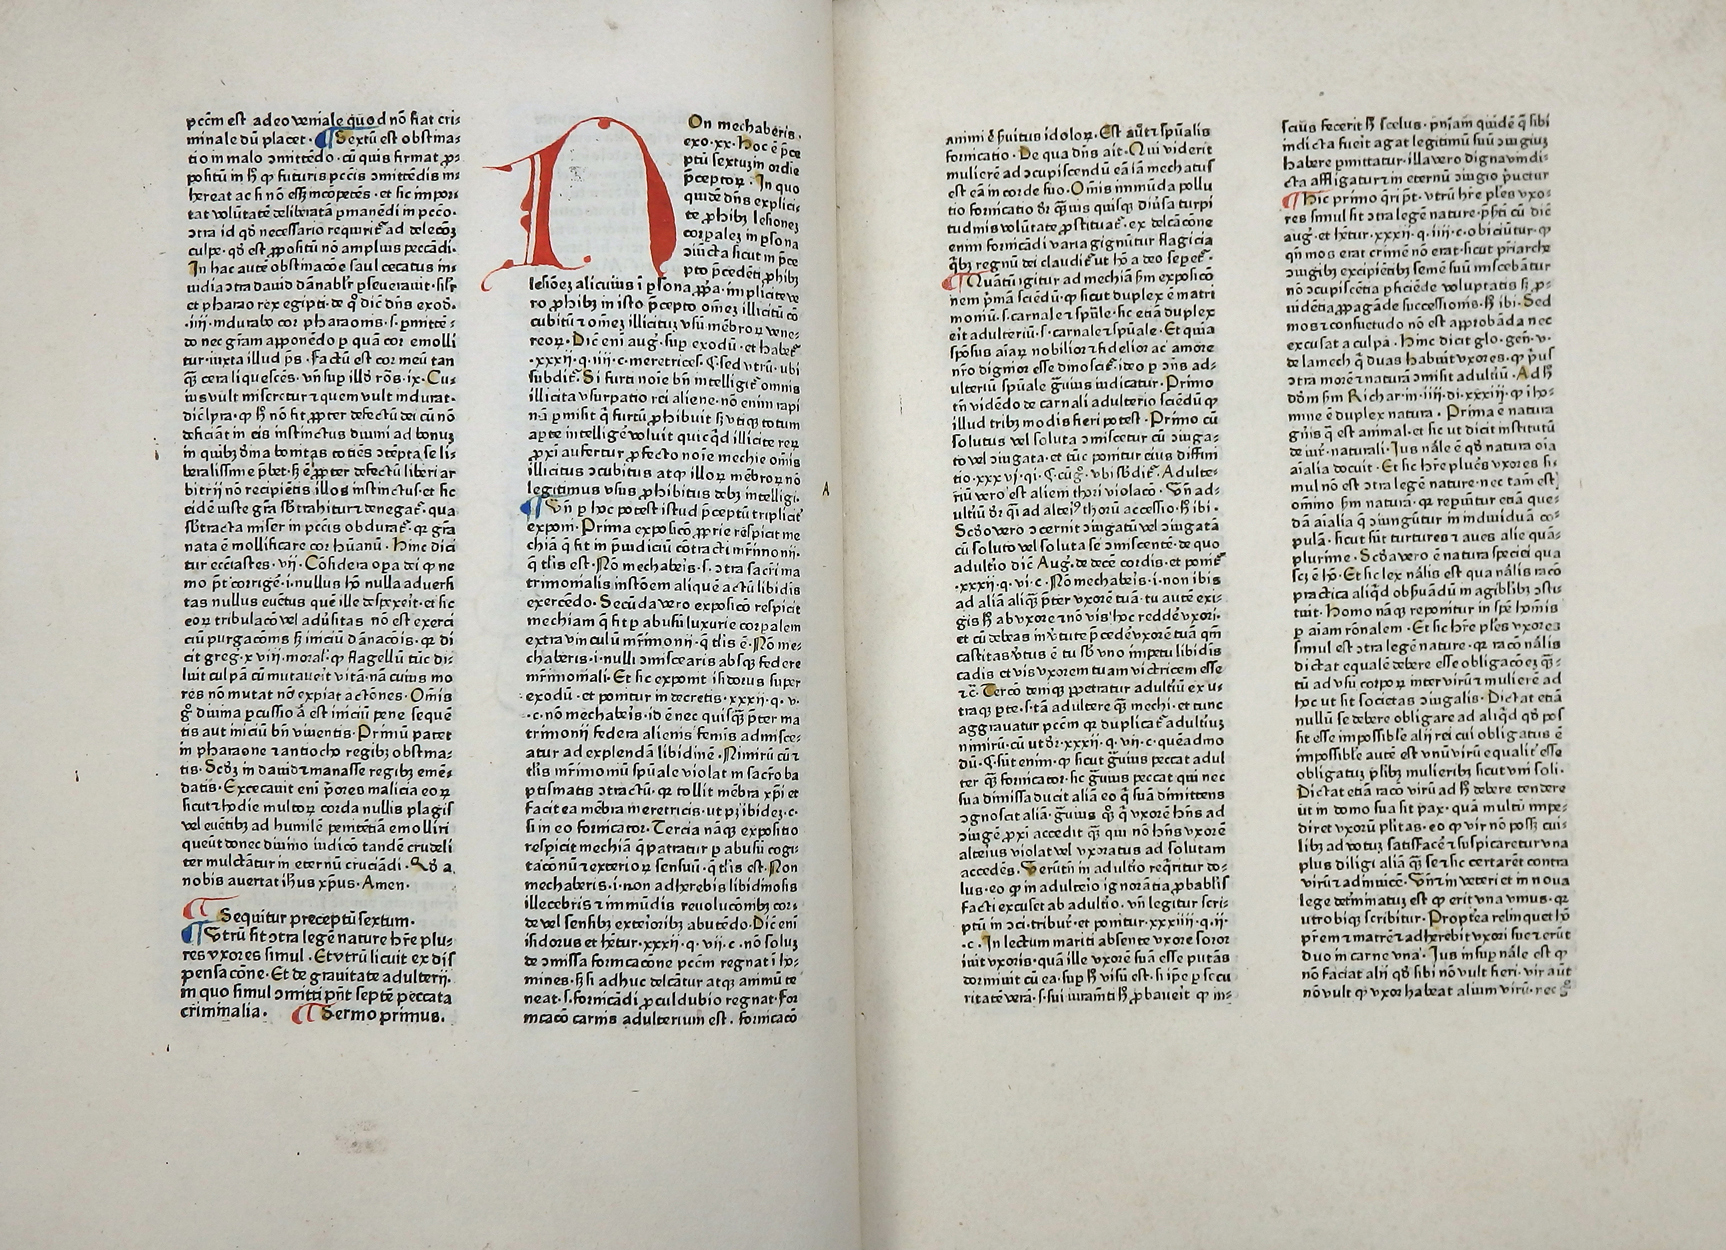 pccm est adeo veniale quod nō fiat cri-
minale dū placet · ¶ Sextū est obstina-
tio in malo ꝯmittēdo · cū quis firmat ꝓ-
positū in hͦ ꝙ futuris pccis ꝯmittēdis in-
hereat ac si nō essꝫ īncōpetēs · et sic impor
tat volūtatē deliberatā ꝑmanēdi in pccō ·
ꝯtra id qď necessario requirit᷑ ad delecōꝫ
culpe · qď est ꝓpositū nō amplius peccādi ·
In hac autē obstinacōe saul cecatus in-
uidia ꝯtra dauid dānabilr ꝑseuerauit · silr
et pharao rex egipti · de q̊ dič dn̄s exod̄ ·
·iiij· indurabo cor pharaonis · s · ꝑmittē-
do nec grām apponēdo ꝑ quā cor emolli
tur · iuxta illud ps̄ · Factū est cor meū tan
qꝫ cera liquescēs · vn̄ suꝑ illď rōs̄ · ix · Cu-
ius vult miseretur ⁊ quem vult indurat ·
dič lyra · ꝙ hͦ nō fit ꝓpter defectū dei cū nō
deficiāt in eis instinctus diuini ad bonuꝫ
in quibꝫ dīna bonitas toties ꝯtēpta se li-
beralissime p̄bet · sꝫ ē ꝓpter defectū liberi ar
bitrij nō recipiētis illos instinctus · et sic
eidē iuste grā sb̄trahitur ⁊ denegat᷑ · qua
sb̄tracta miser in pccis obdurat᷑ · qꝛ grā
nata ē mollificare cor hūanū · Hinc dici
tur ecciastes · vij · Cōsidera oꝑa dei ꝙ ne
mo pt̄ corrigē · i · nullus hō nulla aduersi
tas nullus euētus quē ille despexeit · et sic
eoꝝ tribulacō vel aduersitas nō est exerci
ciū purgacōnis sꝫ iniciū dānacōis · qꝛ di
cit greg̃ · xviij · moral · ꝙ flagellū tūc di-
luit culpā cū mutaueit vitā · nā cuius mo
res nō mutat nō expiat actōnes · Om̄is
g̊ diuina ꝑcussio ā est iniciū pene sequē
tis aut iniciū bn̄ viuentis · Primū patet
in pharaone ⁊ antiocho regibꝫ obstina-
tis · Scďꝫ in dauid ⁊ manasse regibꝫ emē-
datis · Excecauit eni p̄ores malicia eoꝝ
sicut ⁊ hodie multoꝝ corda nullis plagis
vel euētibꝫ ad humilē penitētiā emolliri
queūt donec diuino iudicō tandē crudeli
ter mulctātur in eternū cruciādi · Qď a
nobis auertat ih̄us xp̄us · Amen ·
¶ Sequitur preceptū sextum ·
¶ Vtrū sit ꝯtra legē nature hr̄e plu-
res vxores simul · Et vtrū licuit ex dis
pensacōne · Et de grauitate adulterij ·
in quo simul ꝯmitti pn̄t septē peccata
criminalia · ¶ Sermo primus ·
NOn mechaberis ·
exo · xx · Hoc ē p̄ce
ptū sextuꝫ in ordīe
p̄ceptoꝝ · In quo
quidē dn̄s explici-
te ꝓhibꝫ lesionēꝫ
corꝑalēꝫ in ꝑsona
ꝯiūcta sicut in p̄ce
pto p̄cedēti ꝓhibꝫ
lesionēꝫ alicuius ī ꝑsona ꝓpa · implicite ve
ro ꝓhibꝫ in isto p̄cepto om̄eꝫ illicitū cō
cubitū ⁊ om̄eꝫ illicituꝫ vsū mēbroꝝ vene-
reoꝝ · Dič eni aug · suꝑ exodū · et habet᷑
·xxxij · q · iiij · c · meretrices · § · sed vtrū · ubi
subdit᷑ · Si furti noīe bn̄ intelligit᷑ omnis
illicita vsurpatio rei aliene · nō enim rapi
nā ꝑmisit ꝙ furtū ꝓhibuit sꝫ vtiqꝫ totum
a ꝑte intelligē voluit quicqď illicite reꝝ
ꝓxi aufertur ꝓfecto noīe mechie om̄is
illicitus ꝯcubitus atqꝫ illoꝝ mēbroꝝ nō
legitimus vsus ꝓhibitus debꝫ intelligi ·
¶ Vn̄ ꝑ hoc potest istud p̄ceptū triplicit᷑
exponi · Prima exposicō ꝓprie respicit me
chiā q̄ fit in p̄iudiciū cōtracti mr̄imonij ·
q̄ tl̄is est · Nō mechabeis · s · ꝯtra sacr̄i ma
trimonialis instōem aliquē actū libidis
exercēdo · Secūda vero exposicō respicit
mechiam q̄ fit ꝑ abusū luxurie corꝑalem
extra vinculū mr̄imonij · q̄ tl̄is ē · Nō me-
chaberis · i · nulli ꝯmiscearis absqꝫ federe
mr̄imonali · Et sic exponit isidorus super
exodū · et ponitur in decretis · xxxij · q · v ·
·c · nō mechabeis · id ē nec quisqꝫ p̄ter ma
trimonij federa alienis femis admisce-
atur ad explendā libidinē · Nimirū cū ⁊
tl̄is mr̄imoniū spūale violat in sacro ba
ptismatis ꝯtractū · qꝛ tollit mēbra xp̄i et
facit ea mēbra meretricis · ut pꝫ ibidez · c ·
si in eo fornicator · Tercia nāqꝫ expositio
respicit mechiā q̄ patratur ꝑ abusū cogi-
tacōnū ⁊ exterioꝝ sensuū · q̄ tl̄is est · Non
mechaberis · i · non adherebis libidinosis
illecebris ⁊ immūdis reuolucōnibꝫ cor-
de vel sensibꝫ exterioribꝫ abutēdo · Dič eni
isidorus et hētur · xxxij · q · vij · c · nō soluꝫ
de ꝯmissa fornicacōne pccm regnat ī ho-
mines · sꝫ si adhuc delcātur atqꝫ animū te
neat · s · fornicādi ꝓculdubio regnat · For
nicacō carnis adulterium est · fornicacō
A
animi ē suitus idoloꝝ · Est aūt ⁊ spūalis
fornicatio · De qua dn̄s ait · Qui viderit
mulierē ad ꝯcupiscendū eā iā mechatus
est eā in corde suo · Om̄is immūda pollu
tio fornicatio dr̄ · qꝫuis quisqꝫ diūsa turpi
tudinis volūtate ꝓstituat᷑ · ex delcācōne
enim fornicādi varia gignūtur flagicia
q̄bꝫ regnū dei claudit᷑ ut hō a deo sepet᷑ ·
¶ Quātū igitur ad mechiā sm exposicō
nem pīmā sciēdū · ꝙ sicut duplex ē matri
moniū · s · carnale ⁊ spūle · sic etiā duplex
eit adulteriū · s · carnale ⁊ spūale · Et quia
spōsus aīaꝝ nobilior ⁊ fidelior ac amore
nr̄o dignior esse dinoscit᷑ · ideo ꝑ oīs ad-
ulteriū spūale grauius iudicatur · Primo
tn̄ vidēdo de carnali adulterio sciēdū ꝙ
illud tribꝫ modis fieri potest · Primo cū
solutus vel soluta ꝯmiscetur cū ꝯiuga-
to vel ꝯiugata · et tūc ponitur eius diffini
tio · xxxvj · q · j · § · cū g̊ · vbi sb̄dit᷑ · Adulte-
riū vero est alieni thori violacō · Vn̄ ad-
ultiū dr̄ qī ad alteiꝰ thorū accessio · hͦ ibi ·
Scďo vero ꝯcernit ꝯiugatū vel ꝯiugatā
cū soluto vel soluta se ꝯmiscentē · de quo
adultio dič Aug · de decē cordis · et ponit᷑
·xxxij · q · vj · c · Nō mechabeis · i · non ibis
ad aliā aliqꝫ p̄ter vxorē tuā · tu autē exi-
gis hͦ ab vxore ⁊ nō vis hoc reddē vxori ·
et cū debeas in v̄tute p̄cedē vxorē tuā qm̄
castitas v̄tus ē tu sb̄ vno impetu libidis
cadis et vis vxorem tuam victricem esse
⁊c̄ · Tercō deniqꝫ ꝓpetratur adultiū ex u-
traqꝫ ꝑte · s · tā adultere qꝫ mechi · et tunc
aggrauatur pccm qꝛ duplicat᷑ adultiuꝫ
nimirū · cū ut dr̄ · xxxij · q · vij · c · quēadmo
dū · § · sūt enim · ꝙ sicut grauius peccat adul
ter qꝫ fornicator · sic grauius peccat qui nec
sua dimissa ducit aliā eo ꝙ suā dimittens
ꝯgnoscat aliā · grauius qꝫ q̄ vxorē hn̄s ad
ꝯiugē ꝓxi accedit qꝫ qui nō hn̄s vxorē
alterius violat vel vxoratus ad solutam
accedēs · Verūtn̄ in adultio reqritur do-
lus · eo ꝙ in adulterio ignorātia ꝓbablis
facti excuset ab adultio · vn̄ legitur scri-
ptū in ꝯci · tribur᷑ · et ponitur · xxxiiij · q · ij ·
·c · In lectum mariti absente vxore soror
iniit vxoris · quā ille vxorē suā esse putās
dormiuit cū ea · suꝑ hͦ visū est · si ip̄e ꝑ secu
ritatē verā · s · sui iuram̄ti hͦ ꝓbaueit ꝙ in-
scius fecerit hͦ scelus · pn̄iam quidē q̄ sibi
indicta fueit agat legitimū suū ꝯiugiuꝫ
habere ꝑmittatur · illa vero digna vindi-
cta affligatur ⁊ in eternū ꝯiugio p̄uetur
¶ Hic primo q̄ri pt̄ · vtrū hr̄e ples vxo-
res simul sit ꝯtra legē nature · ptʒ cū dič
aug · et hētur · xxxij · q · iiij · c · obiciūtur · ꝙ
qn̄ mos erat crimē nō erat · sicut priārche
ꝯiugibꝫ excipiētibꝫ semē suū miscebātur
nō ꝯcupiscētia pficiēde voluptatis sꝫ ꝓ-
uidētia ꝓpagāde successionis · hͦ ibi · Sed
mos ⁊ consuetudo nō est approbāda nec
excusat a culpa · Hinc dicit glo · gen̄ · v ·
de lamech q̄ duas habuit vxores · ꝙ pīus
ꝯtra morē ⁊ naturā ꝯmisit adultiū · Ad hͦ
dōm sm Richar · in · iiij · di · xxxiij · ꝙ i ho-
mine ē duplex natura · Prima ē natura
gn̄is q̄ est animal · et sic ut dicit institutū
de iur̄ · naturali · Jus nāle ē qď natura oīa
aīalia docuit · Et sic hr̄e plues vxores si-
mul nō est ꝯtra legē nature · nec tam est
om̄ino sm naturā · qꝛ repiūtur etiā que-
dā aīalia q̄ ꝯiungūtur in indiuiduā co-
pulā · sicut sūt turtures ⁊ aues alie quā-
plurime · Scďa vero ē natura speciei qua
scꝫ ē hō · Et sic lex nālis est qua nālis racō
practica aliqď obseruādū in agibilibꝫ ꝯsti-
tuit · Homo nāqꝫ reponitur in spē hoīnis
ꝑ aīam rōnalem · Et sic hr̄e ples vxores
simul est ꝯtra legē nature · qꝛ racō nālis
dictat equalē debere esse obligacōeꝫ qꝫ-
tū ad vsū corpoꝝ inter virū ⁊ mulierē ad
hoc ut sit societas ꝯiugalis · Dictat etiā
nullū se debere obligare ad aliqď qď pos
sit esse impossible alij rei cui obligatus ē
impossible autē est vnū virū equalit᷑ esse
obligatuꝫ plibꝫ mulieribꝫ sicut vni soli ·
Dictat etiā racō virū ad hͦ debere tendere
ut in domo sua sit pax · quā multū impe-
diret vxorū plitas · eo ꝙ vir nō possꝫ cui-
libꝫ ad votuꝫ satisfacē ⁊ suspicaretur vna
plus diligi aliā qꝫ se ⁊ sic certarēt contra
virū ⁊ adinuicē · Vn̄ ⁊ in veteri et in noua
lege det̄minatuꝫ est ꝙ erit vna vnius · qꝛ
utrobiqꝫ scribitur · Propt̄ea relinquet hō
pr̄em ⁊ matrē ⁊ adherebit vxori sue ⁊ erūt
duo in carne vna · Jus insuꝑ nāle est ꝙ
nō faciat alij qď sibi nō vult fieri · vir aūt
nō vult ꝙ vxor habeat alium virū · nec